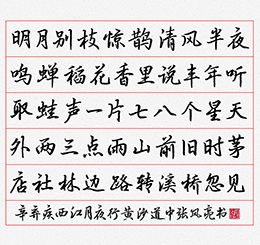 明月别枝惊鹊清风半夜
鸣蝉稻花香里说丰年听
取蛙声一片七八个星天
外两三点雨山前旧时茅
店社林边路转溪桥忽见
辛弃疾西江月夜行黄沙道中张风亮书